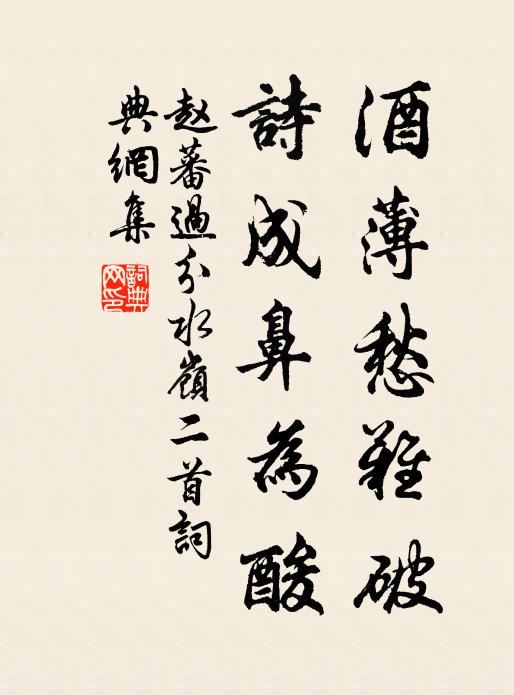 酒薄愁難破
詩成鼻為酸
赵蕃過分水嶺二首詞
典網集
詞典
网印